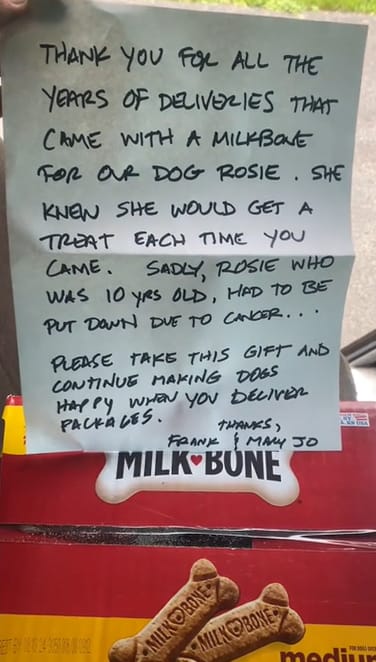 THANK YOU FOR ALL THE
YEARS OF DELIVERIES THAT
CAME WITH A MILKBONE
FOR OUR DOG ROSIE. SHE
KNEW SHE WOULD GET A
TREAT EACH TIME YOU
CAME. SADLY, ROSIE WHO
WAS 10 YRS OLD, HAD TO BE
PUT DOWN DUE TO CANCER...
PLEASE TAKE THIS GIFT AND
CONTINUE MAKING DOGS
HAPPY WHEN YOU DELIVER
PACKAGES.
THANKS,
FRANK & MARY JO
MILK BONE
MILK BONE
MILK BONE
medium